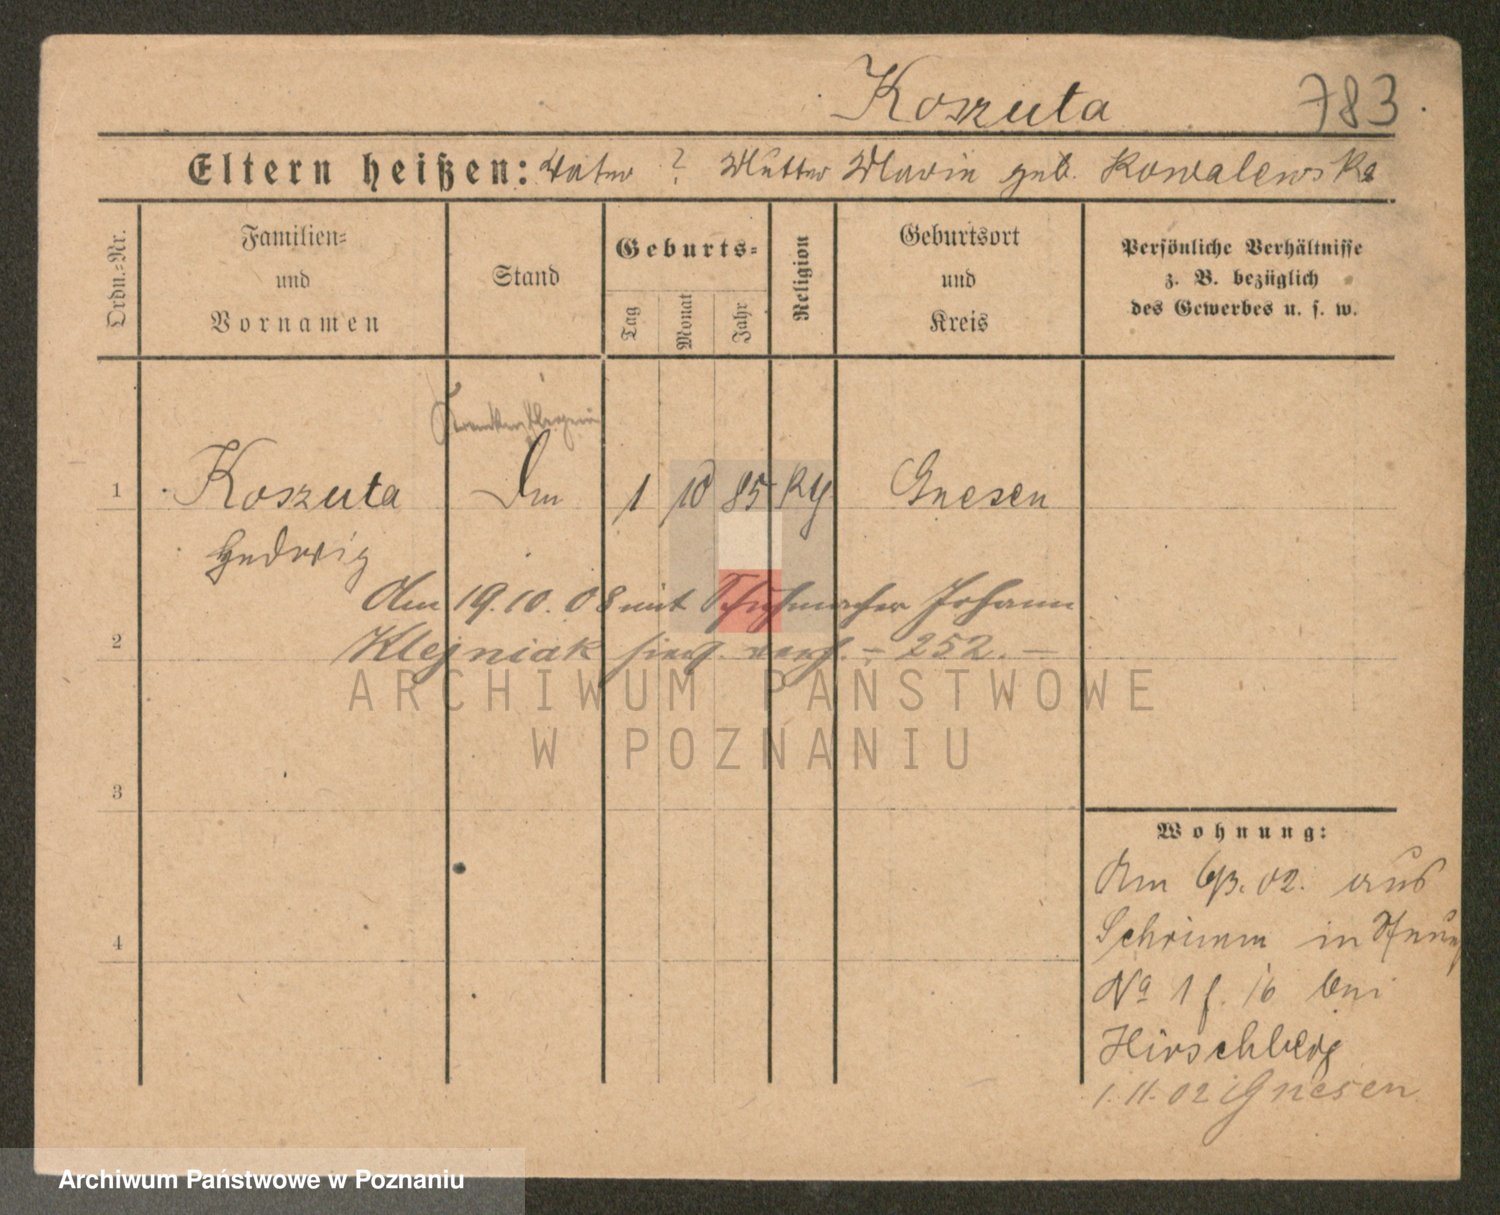 Koszuta 783
Eltern heißen: Vater ? Mutter Marie geb. Kowalewska
Ordn.-Nr.
Familien-
und
Vornamen
Stand
Geburts-
Tag
Monat
Jahr
Religion
Geburtsort
und
Kreis
Persönliche Verhältnisse
z. B. bezüglich
des Gewerbes u. s. w.
1 Koszuta 1 10 85 Gnesen
Hedwig
Am 19.10.08 mit Schuhmacher Johann
2
Klejniak verh. - 252. -
ARCHIWUM PAŃSTWOWE
W POZNANIU
3
Wohnung:
Am 6/3.02. aus
4
Schrimm in
No 1 f. 16 bei
Hirschberg
1.11.02 Gnesen
Archiwum Państwowe w Poznaniu